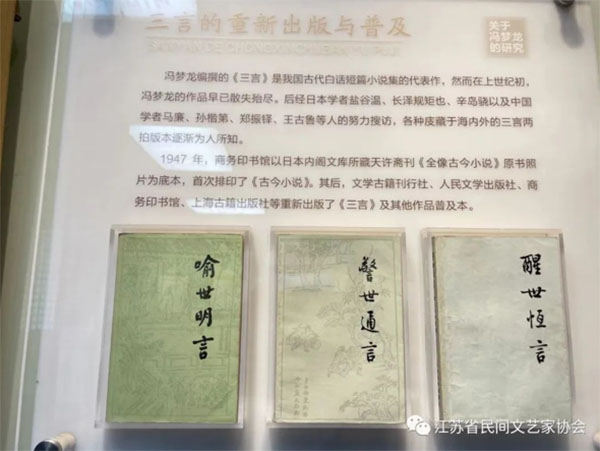 三言的重新出版与普及
SANYAN DE CHONGXINCHUBAN YU PUJI
关于
冯梦龙
的研究
冯梦龙编撰的《三言》是我国古代白话短篇小说集的代表作，然而在上世纪初，
冯梦龙的作品早已散失殆尽。后经日本学者盐谷温、长泽规矩也、辛岛骁以及中国
学者马廉、孙楷第、郑振铎、王古鲁等人的努力搜访，各种庋藏于海内外的三言两
拍版本逐渐为人所知。
1947 年，商务印书馆以日本内阁文库所藏天许斋刊《全像古今小说》原书照
片为底本，首次排印了《古今小说》。其后，文学古籍刊行社、人民文学出版社、商
务印书馆、上海古籍出版社等重新出版了《三言》及其他作品普及本。
喻世明言
警世通言
醒世恒言
江苏省民间文艺家协会